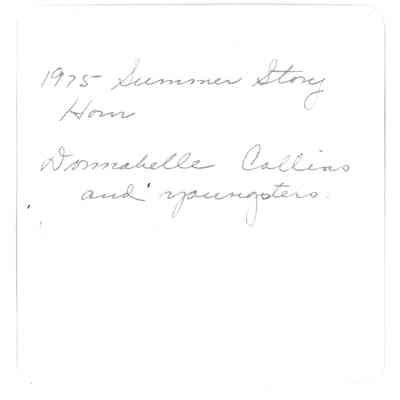 1975 Summer Story
Hour
Donnabelle Collins
and youngsters.